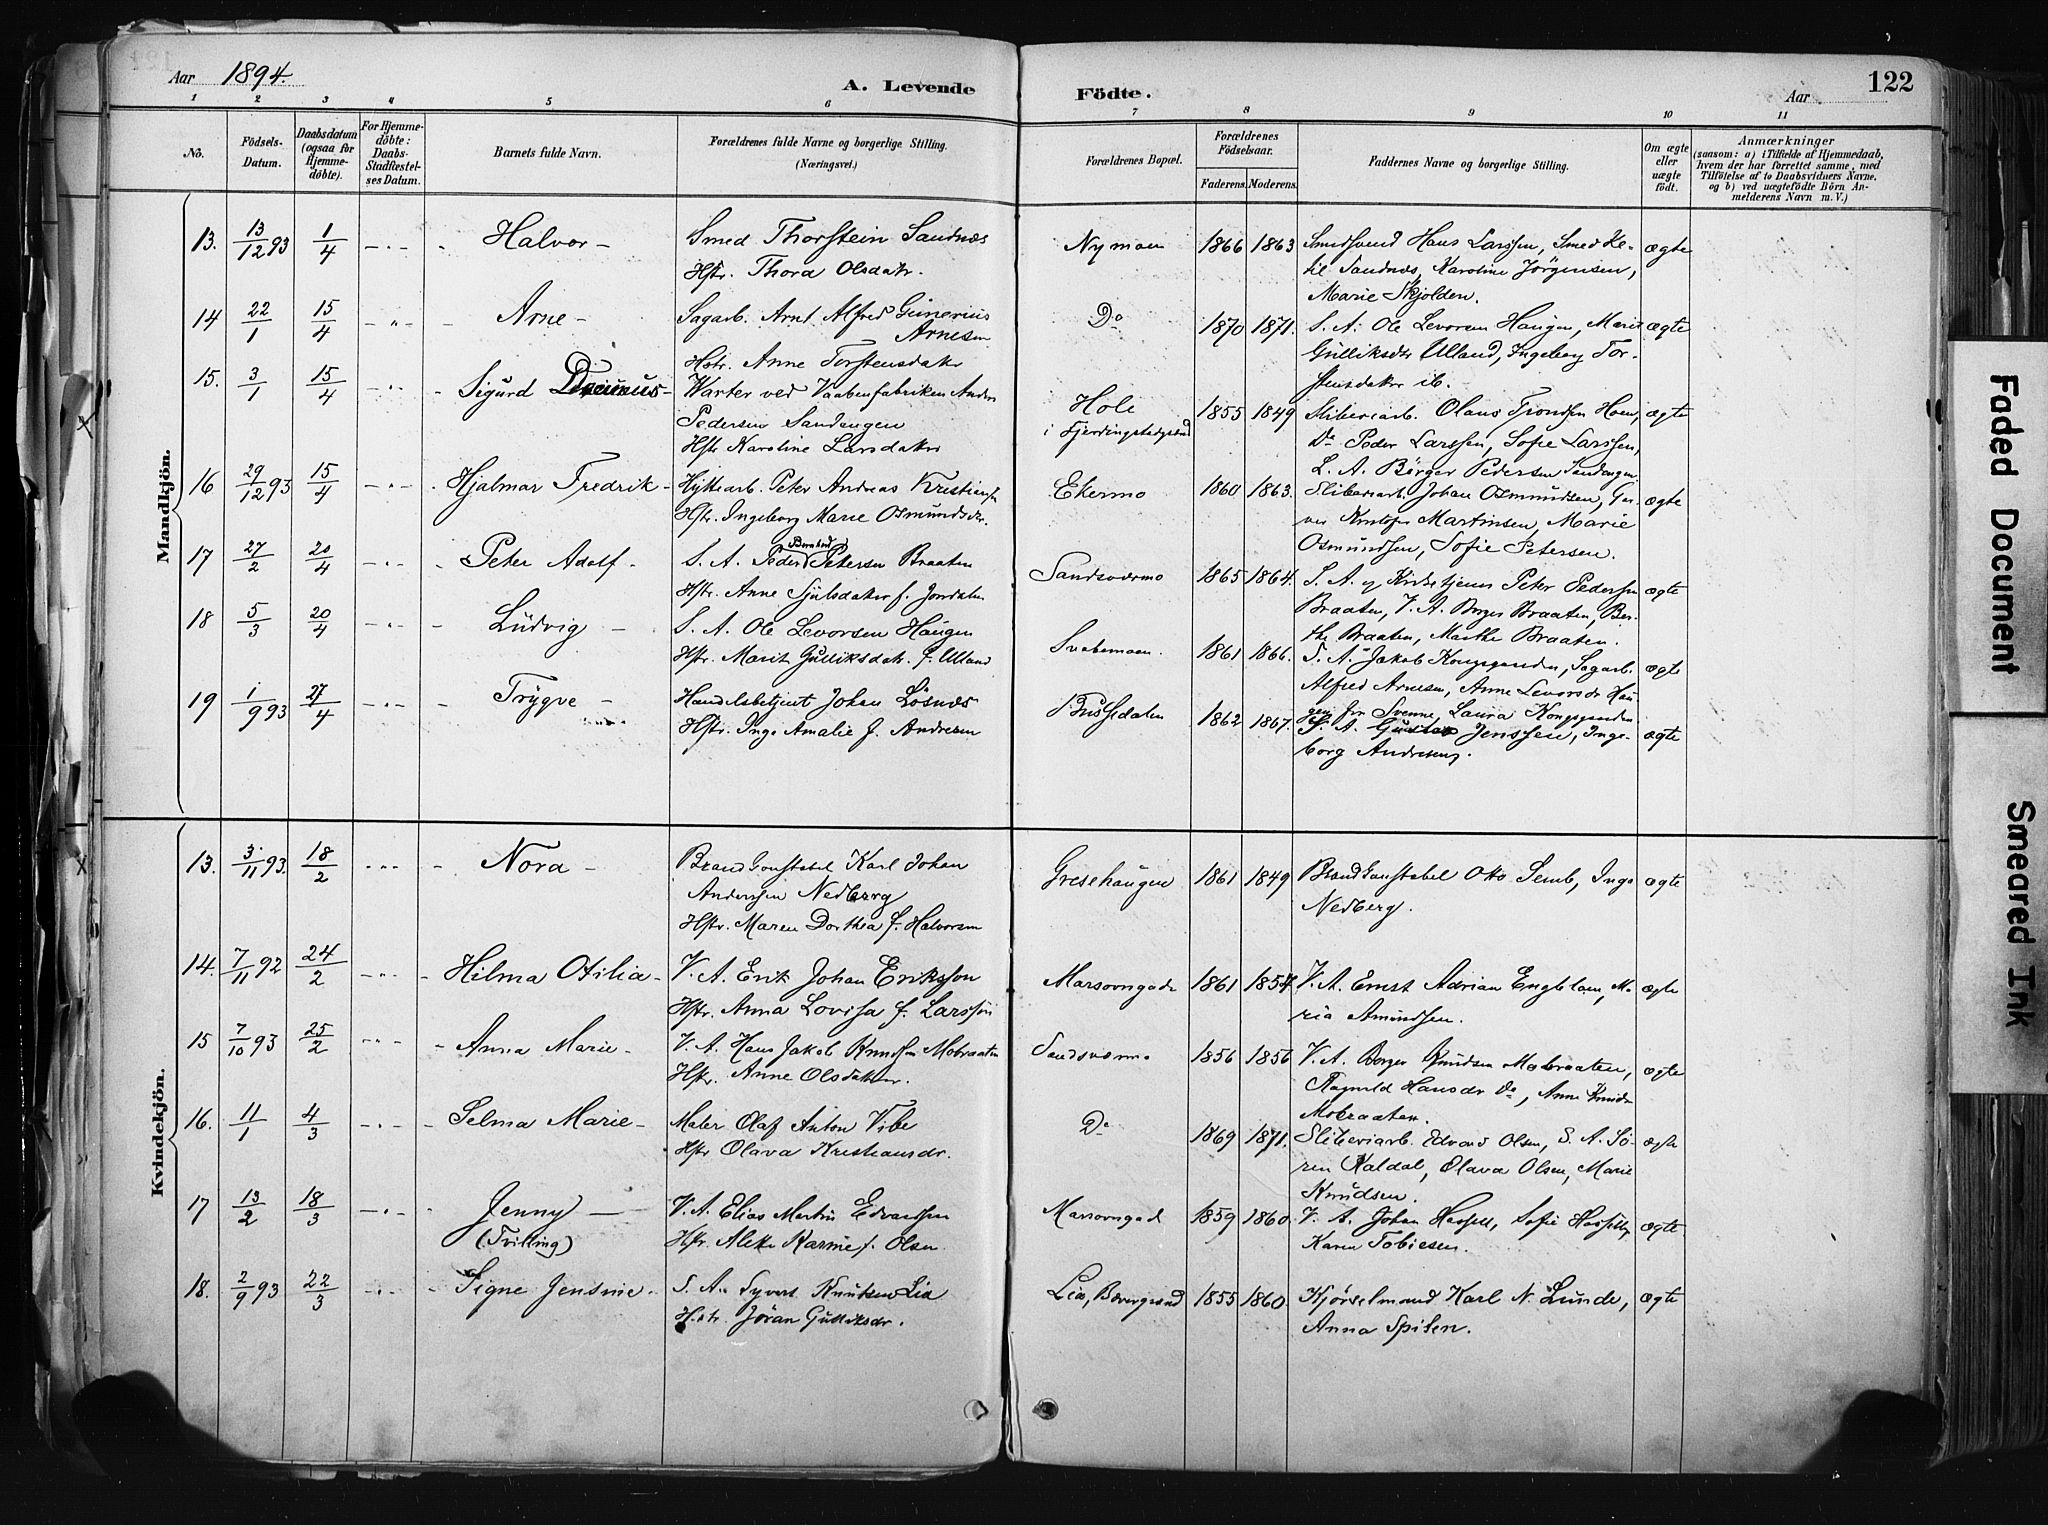 Aar 1894.
A. Levende
Födte.
Aar
122
1 2 3 4 5 6 7 8 9 10 11
No.
Födsels-
Datum.
Daabsdatum
(ogsaa for
Hjemme-
döbte).
For Hjemme-
döbte:
Daabs-
Stadfæstel-
ses Datum.
Barnets fulde Navn.
Forældrenes fulde Navne og borgerlige Stilling.
(Næringsvei.)
Forældrenes Bopæl.
Forældrenes
Födselsaar.
Faderens. Moderens.
Faddernes Navne og borgerlige Stilling.
Om ægte
eller
uægte
födt.
Anmærkninger
(saasom: a) i Tilfælde af Hjemmedaab,
hvem der har forrettet samme, med
Tilföielse af to Daabsvidners Navne,
og b) ved uægtefödte Börn An-
melderens Navn m. V.)
Mandkjön.
13. 13/12 93 1/4 Halvor - Smed Thorstein Sandnæs
Hstr. Thora Olsdatr.
Nymoen 1866 1863 Smedsvend Hans Larssen, Smed Ke-
til Sandnæs, Karoline Jörgensen,
Marie Skjolden.
ægte
14 22/1 15/4 Arne - Sagarb. Arnt Alfred Ginerius
Arnesen
Hstr. Anne Torstensdatr
Do 1870 1871. S. A. Ole Levorsen Haugen, Marit
Gulliksdtr Ulland, Ingeborg Tor-
stensdatr ib.
ægte
15. 3/1 15/4 Sigurd - Varter ved Vaabenfabriken Anders
Pedersen Sandengen
Hstr Karoline Larsdatr
Hole
i Fjerdingstadgrend
1855 1849 Sliberiarb. Olaus Trondsen Hoen,
Do Peder Larssen, Sofie Larssen,
L. A. Börger Pedersen Sandengen
ægte
16 29/12 93 15/4 Hjalmar Fredrik - Hytttearb. Peter Andreas Kristiansen
Hstr. Ingeborg Marie Osmundsdr.
Ekermo 1860 1863. Sliberiarb. Johan Osmundsen, Gar-
ver Kristofer Martinsen, Marie
Osmundsen, Sofie Petersen.
ægte
17 27/2 20/4 Peter Adolf - S. A. Peder Bernhard Petersen Braaten
Hstr. Anne Sjulsdatr f. Jondalen
Sandsværmo 1865 1864. S. A. og Kirketjener Peter Pedersen
Braaten, V. A. Borger Braaten, Ber-
the Braaten, Marthe Braaten.
ægte
18 5/3 20/4 Ludvig - S. A. Ole Levorsen Haugen
Hstr. Marit Gulliksdatr. f. Ulland
Svabemoen. 1861 1866. S. A. Jakob Kongsgaarden, Sagarb.
Alfred Arnesen, Anne Levorsdr Hau-
gen fra Svenne, Laura Kongsgaarden
ægte
19 1/9 93 27/4 Trygve - Handelsbetjent Johan Lösnæs
Hstr. Inga Amalie f. Andresen
Pussedalen 1862 1867. S. A. Gustav Jenssen, Inge-
borg Andresen.
ægte
Kvindekjön.
13. 3/11 93. 18/2 Nora - Brandkonstabel Karl Johan
Anderssen Nedberg
Hstr. Maren Dorthea f. Halvorsen
Gresehaugen 1861 1849 Brandkonstabel Otto Semb, Inga
Nedberg.
ægte
14. 7/11 92 24/2 Hilma Otilia - V. A. Erik Johan Eriksson
Hstr. Anna Lovisa f. Larsson
Marsovngade 1861 1854. V. A. Ernst Adrian Englblom, Ma-
ria Amundsen.
ægte
15 7/10 93 25/2 Anna Marie - V. A. Hans Jakob Knudsen Mobraaten
Hstr. Anne Olsdatter.
Sandsværmo 1856 1856 V. A. Borger Knudsen Mobraaten,
Ragnild Hansdr Do, Anne Knudsdr
Mobraaten.
ægte
16. 11/1 4/3 Selma Marie - Maler Olaf Anton Vibe
Hstr Olava Kristiansdr.
Do 1869 1871. Sliberiarb. Edvard Olsen, S. A. Sö-
ren Kaldal, Olava Olsen, Marie
Knudsen.
ægte
17 13/2 18/3 Jenny -
(Tvilling)
V. A. Elias Martin Edvardsen
Hstr. Alette Karine f. Olsen
Marsovngad 1859 1860. V. A. Johan Hassell, Sofie Hassell,
Karen Tobiesen.
ægte
18. 2/9 93 22/3 Signe Jensine - S. A. Syvert Knutsen Lia
Hstr. Jöran Gulliksdr.
Lia, Bævergrend 1855 1860. Kjörselmand Karl N. Lunde,
Anna Spiten.
ægte
Faded Document
Smeared Ink